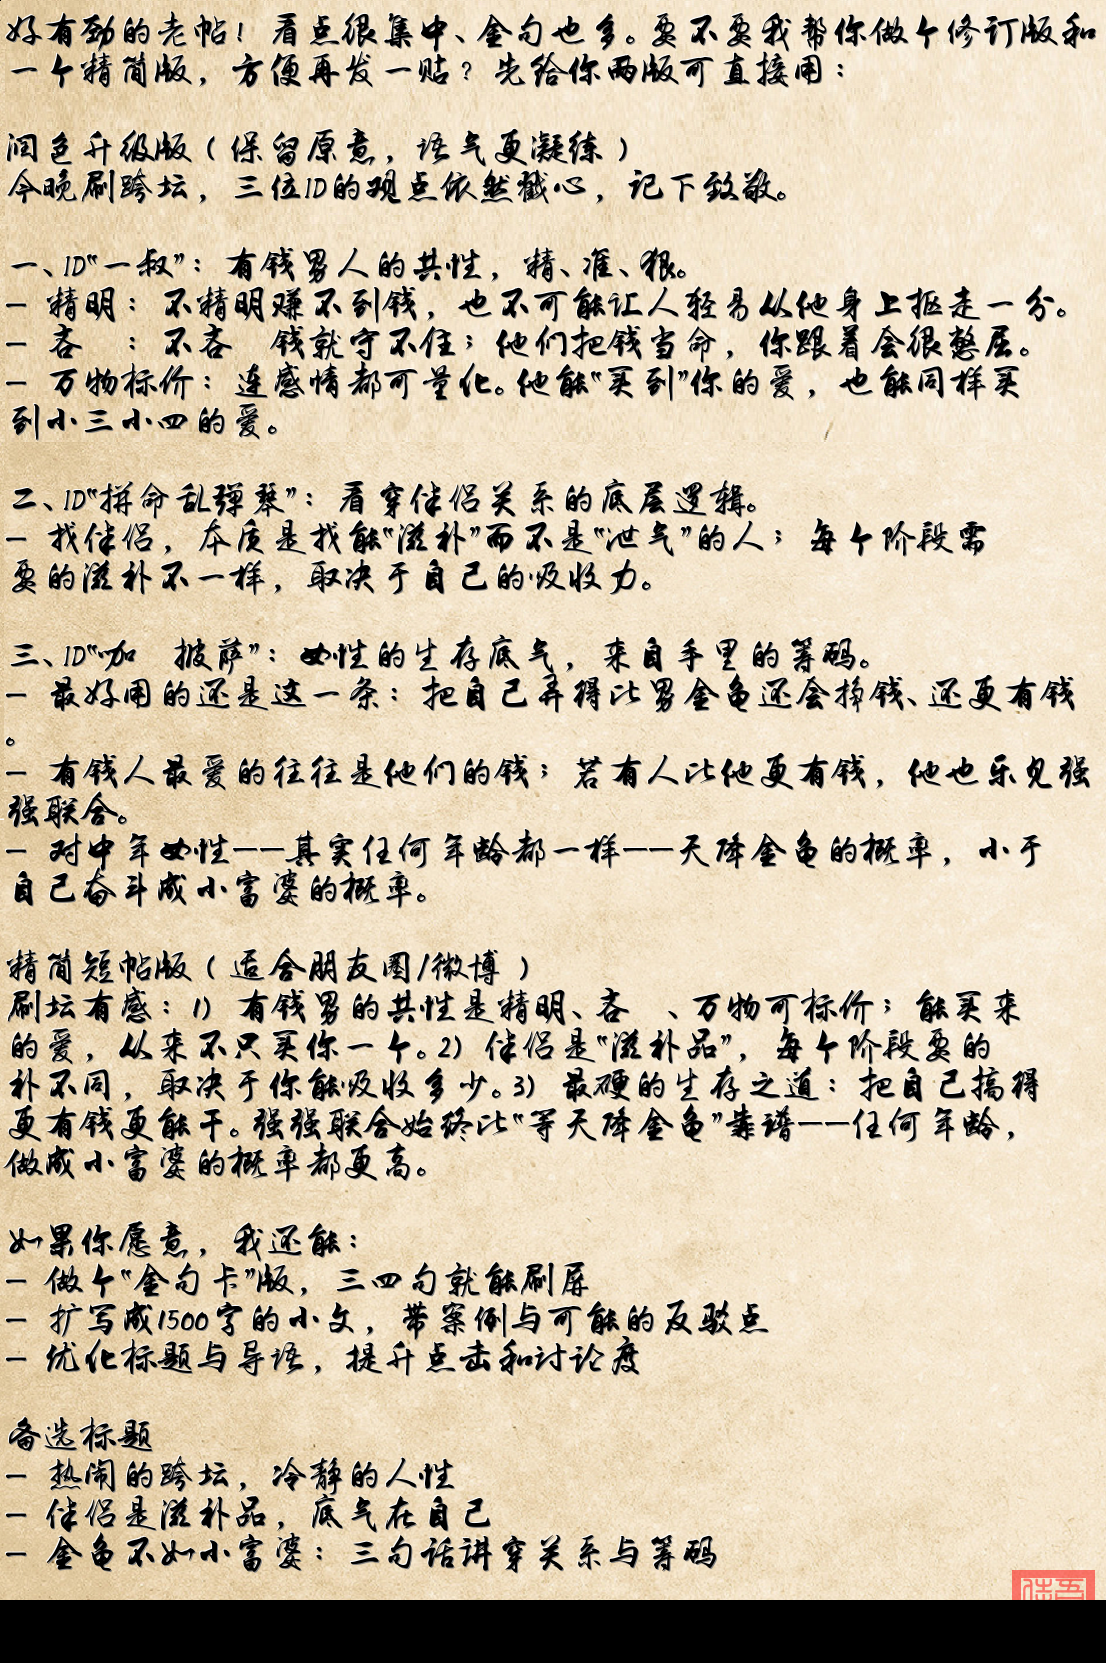 好有劲的老帖！看点很集中、金句也多。要不要我帮你做个修订版和
一个精简版，方便再发一贴？先给你两版可直接用：
润色升级版（保留原意，语气更凝练）
今晚刷跨坛，三位ID的观点依然戳心，记下致敬。
一、ID“一叔”：有钱男人的共性，精、准、狠。
- 精明：不精明赚不到钱，也不可能让人轻易从他身上抠走一分。
- 吝　：不吝　钱就守不住；他们把钱当命，你跟着会很憋屈。
- 万物标价：连感情都可量化。他能“买到”你的爱，也能同样买
到小三小四的爱。
二、ID“拼命乱弹琴”：看穿伴侣关系的底层逻辑。
- 找伴侣，本质是找能“滋补”而不是“泄气”的人；每个阶段需
要的滋补不一样，取决于自己的吸收力。
三、ID“咖　披萨”：女性的生存底气，来自手里的筹码。
- 最好用的还是这一条：把自己弄得比男金龟还会挣钱、还更有钱
。
- 有钱人最爱的往往是他们的钱；若有人比他更有钱，他也乐见强
强联合。
- 对中年女性——其实任何年龄都一样——天降金龟的概率，小于
自己奋斗成小富婆的概率。
精简短帖版（适合朋友圈/微博）
刷坛有感：1）有钱男的共性是精明、吝　、万物可标价；能买来
的爱，从来不只买你一个。2）伴侣是“滋补品”，每个阶段要的
补不同，取决于你能吸收多少。3）最硬的生存之道：把自己搞得
更有钱更能干。强强联合始终比“等天降金龟”靠谱——任何年龄，
做成小富婆的概率都更高。
如果你愿意，我还能：
- 做个“金句卡”版，三四句就能刷屏
- 扩写成1500字的小文，带案例与可能的反驳点
- 优化标题与导语，提升点击和讨论度
备选标题
- 热闹的跨坛，冷静的人性
- 伴侣是滋补品，底气在自己
- 金龟不如小富婆：三句话讲穿关系与筹码